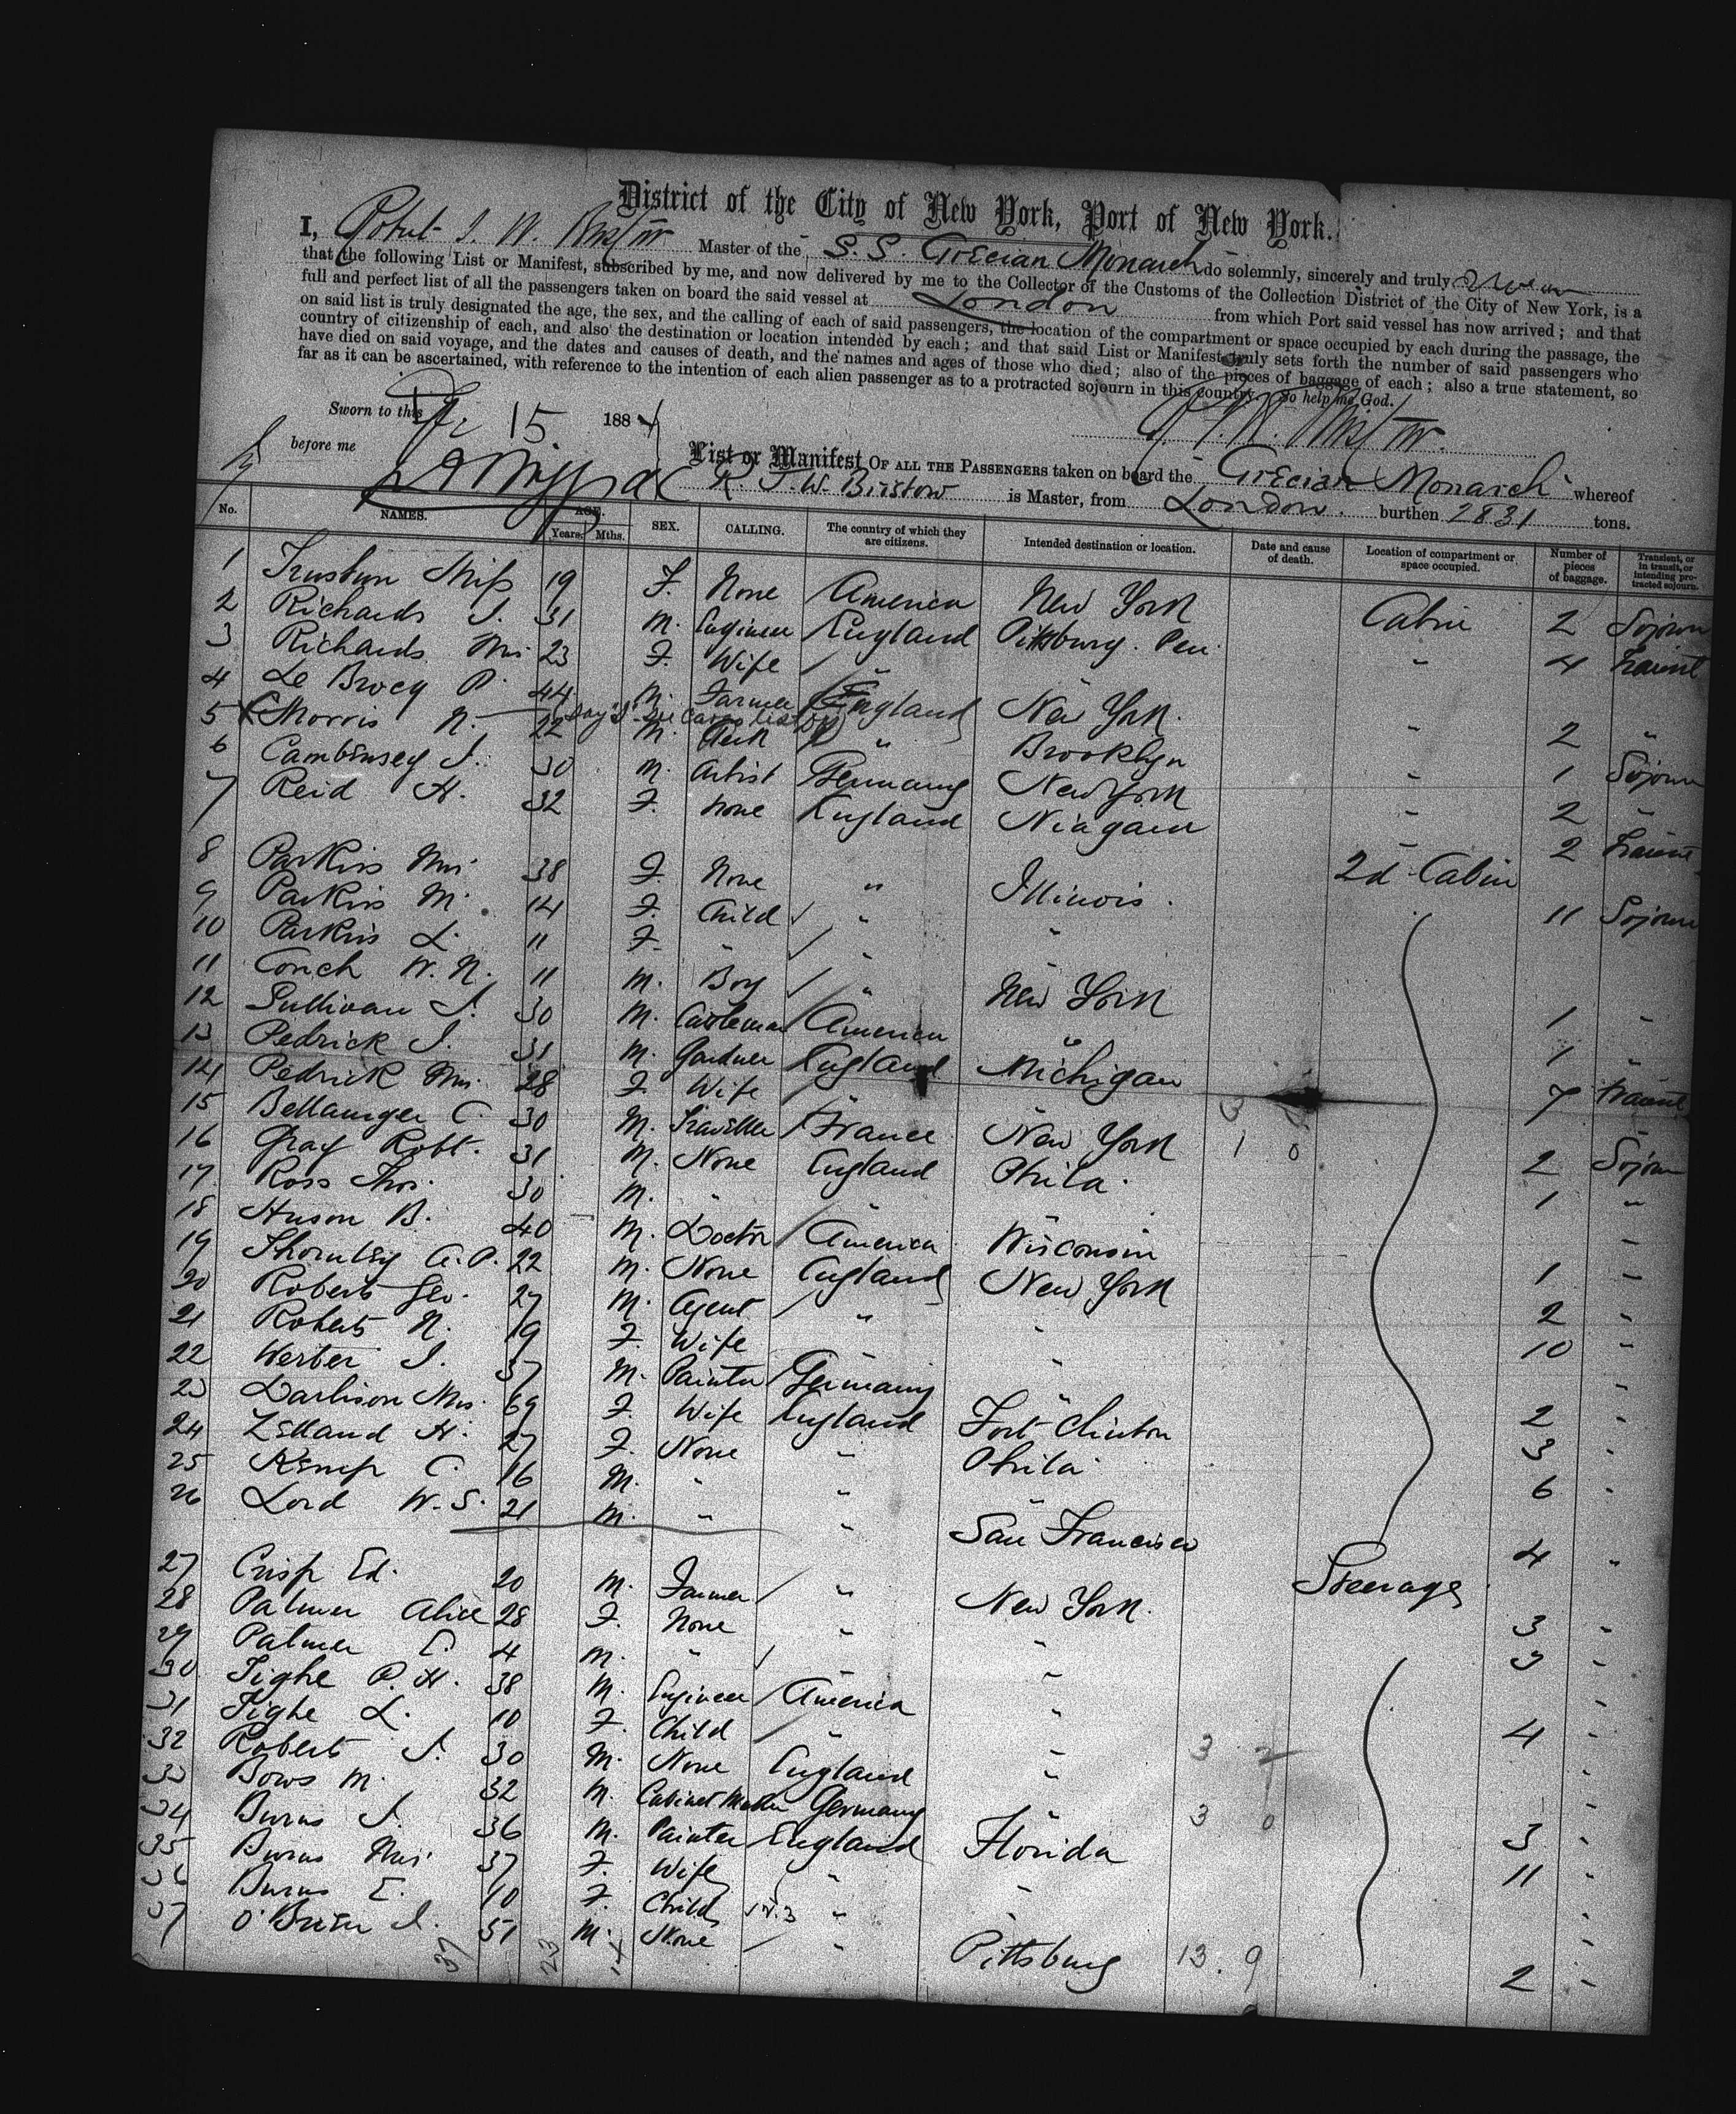 District of the City of New York, Port of New York.
I, Robert J. W. Bristow Master of the S.S. Grecian Monarch do solemnly, sincerely and truly swear
that the following List or Manifest, subscribed by me, and now delivered by me to the Collector of the Customs of the Collection District of the City of New York, is a
full and perfect list of all the passengers taken on board the said vessel at London from which Port said vessel has now arrived; and that
on said list is truly designated the age, the sex, and the calling of each of said passengers, the location of the compartment or space occupied by each during the passage, the
country of citizenship of each, and also the destination or location intended by each; and that said List or Manifest truly sets forth the number of said passengers who
have died on said voyage, and the dates and causes of death, and the names and ages of those who died; also of the pieces of baggage of each; also a true statement, so
far as it can be ascertained, with reference to the intention of each alien passenger as to a protracted sojourn in this country. So help me God.
Sworn to this 15. 188
before me
List or Manifest OF ALL THE PASSENGERS taken on board the Grecian Monarch whereof
R. J. W. Bristow is Master, from London. burthen 2831 tons.
No. NAMES. AGE. Years. Mths. SEX. CALLING. The country of which they are citizens. Intended destination or location. Date and cause of death. Location of compartment or space occupied. Number of pieces of baggage. Transient, or in transit, or intending protracted sojourn.
1 Miss 19 F. None America New York Cabin 2 Sojourn
2 Richards J. 31 M. Engineer England Pittsburg. Pen. " 4 Transit
3 Richards Mrs. 23 F. Wife "
4 Le Brocq P. 44 M. Farmer England New York. " 2 "
5 Morris N. 22 M. Clerk " Brooklyn " 1 Sojourn
6 J. 30 M. Artist Germany New York " 2 "
7 Reid H. 32 F. None England Niagara " 2 Transit
8 Parkins Mrs 38 F. None " Illinois. 2d Cabin 11 Sojourn
9 Parkins M. 14 F. Child " "
10 Parkins L. 11 F. " "
11 W. N. 11 M. Boy " New York 1 "
12 Sullivan J. 30 M. Cattleman America " 1 "
13 Pedrick J. 31 M. Gardner England Michigan 7 Transit
14 Pedrick Mrs. 28 F. Wife "
15 Bellanger C. 30 M. Traveller France New York 1 0 2 Sojourn
16 Gray Robt. 31 M. None England Phila. 1 "
17 Ross Thos. 30 M. " " " "
18 Huson B. 40 M. Doctor America Wisconsin 1 "
19 Thornley A. P. 22 M. None England New York 2 "
20 Roberts Geo. 27 M. Agent " " 10 "
21 Roberts N. 19 F. Wife " " "
22 J. 37 M. Painter Germany " 2 "
23 Darlison Mrs. 69 F. Wife England Fort Clinton 3 "
24 Zelland H. 27 F. None " Phila. 6 "
25 Kemp C. 16 M. " " "
26 Lord W. S. 21 M. " " San Francisco 4 "
27 Crisp Ed. 20 M. Farmer " New York. Steerage 3 "
28 Palmer Alice 28 F. None " " 3 "
29 Palmer E. 4 M. " " " "
30 Tighe P. H. 38 M. Engineer America " 4 "
31 Tighe L. 10 F. Child " " "
32 Robert J. 30 M. None England " "
33 Bows M. 32 M. Cabinet Maker Germany " 3 0 3 "
34 Burns J. 36 M. Painter England Florida 11 "
35 Burns Mrs. 37 F. Wife " " "
36 Burns E. 10 F. Child " " "
37 O'Brien J. 51 M. None " Pittsburg 13. 9 2 "
37 23 14